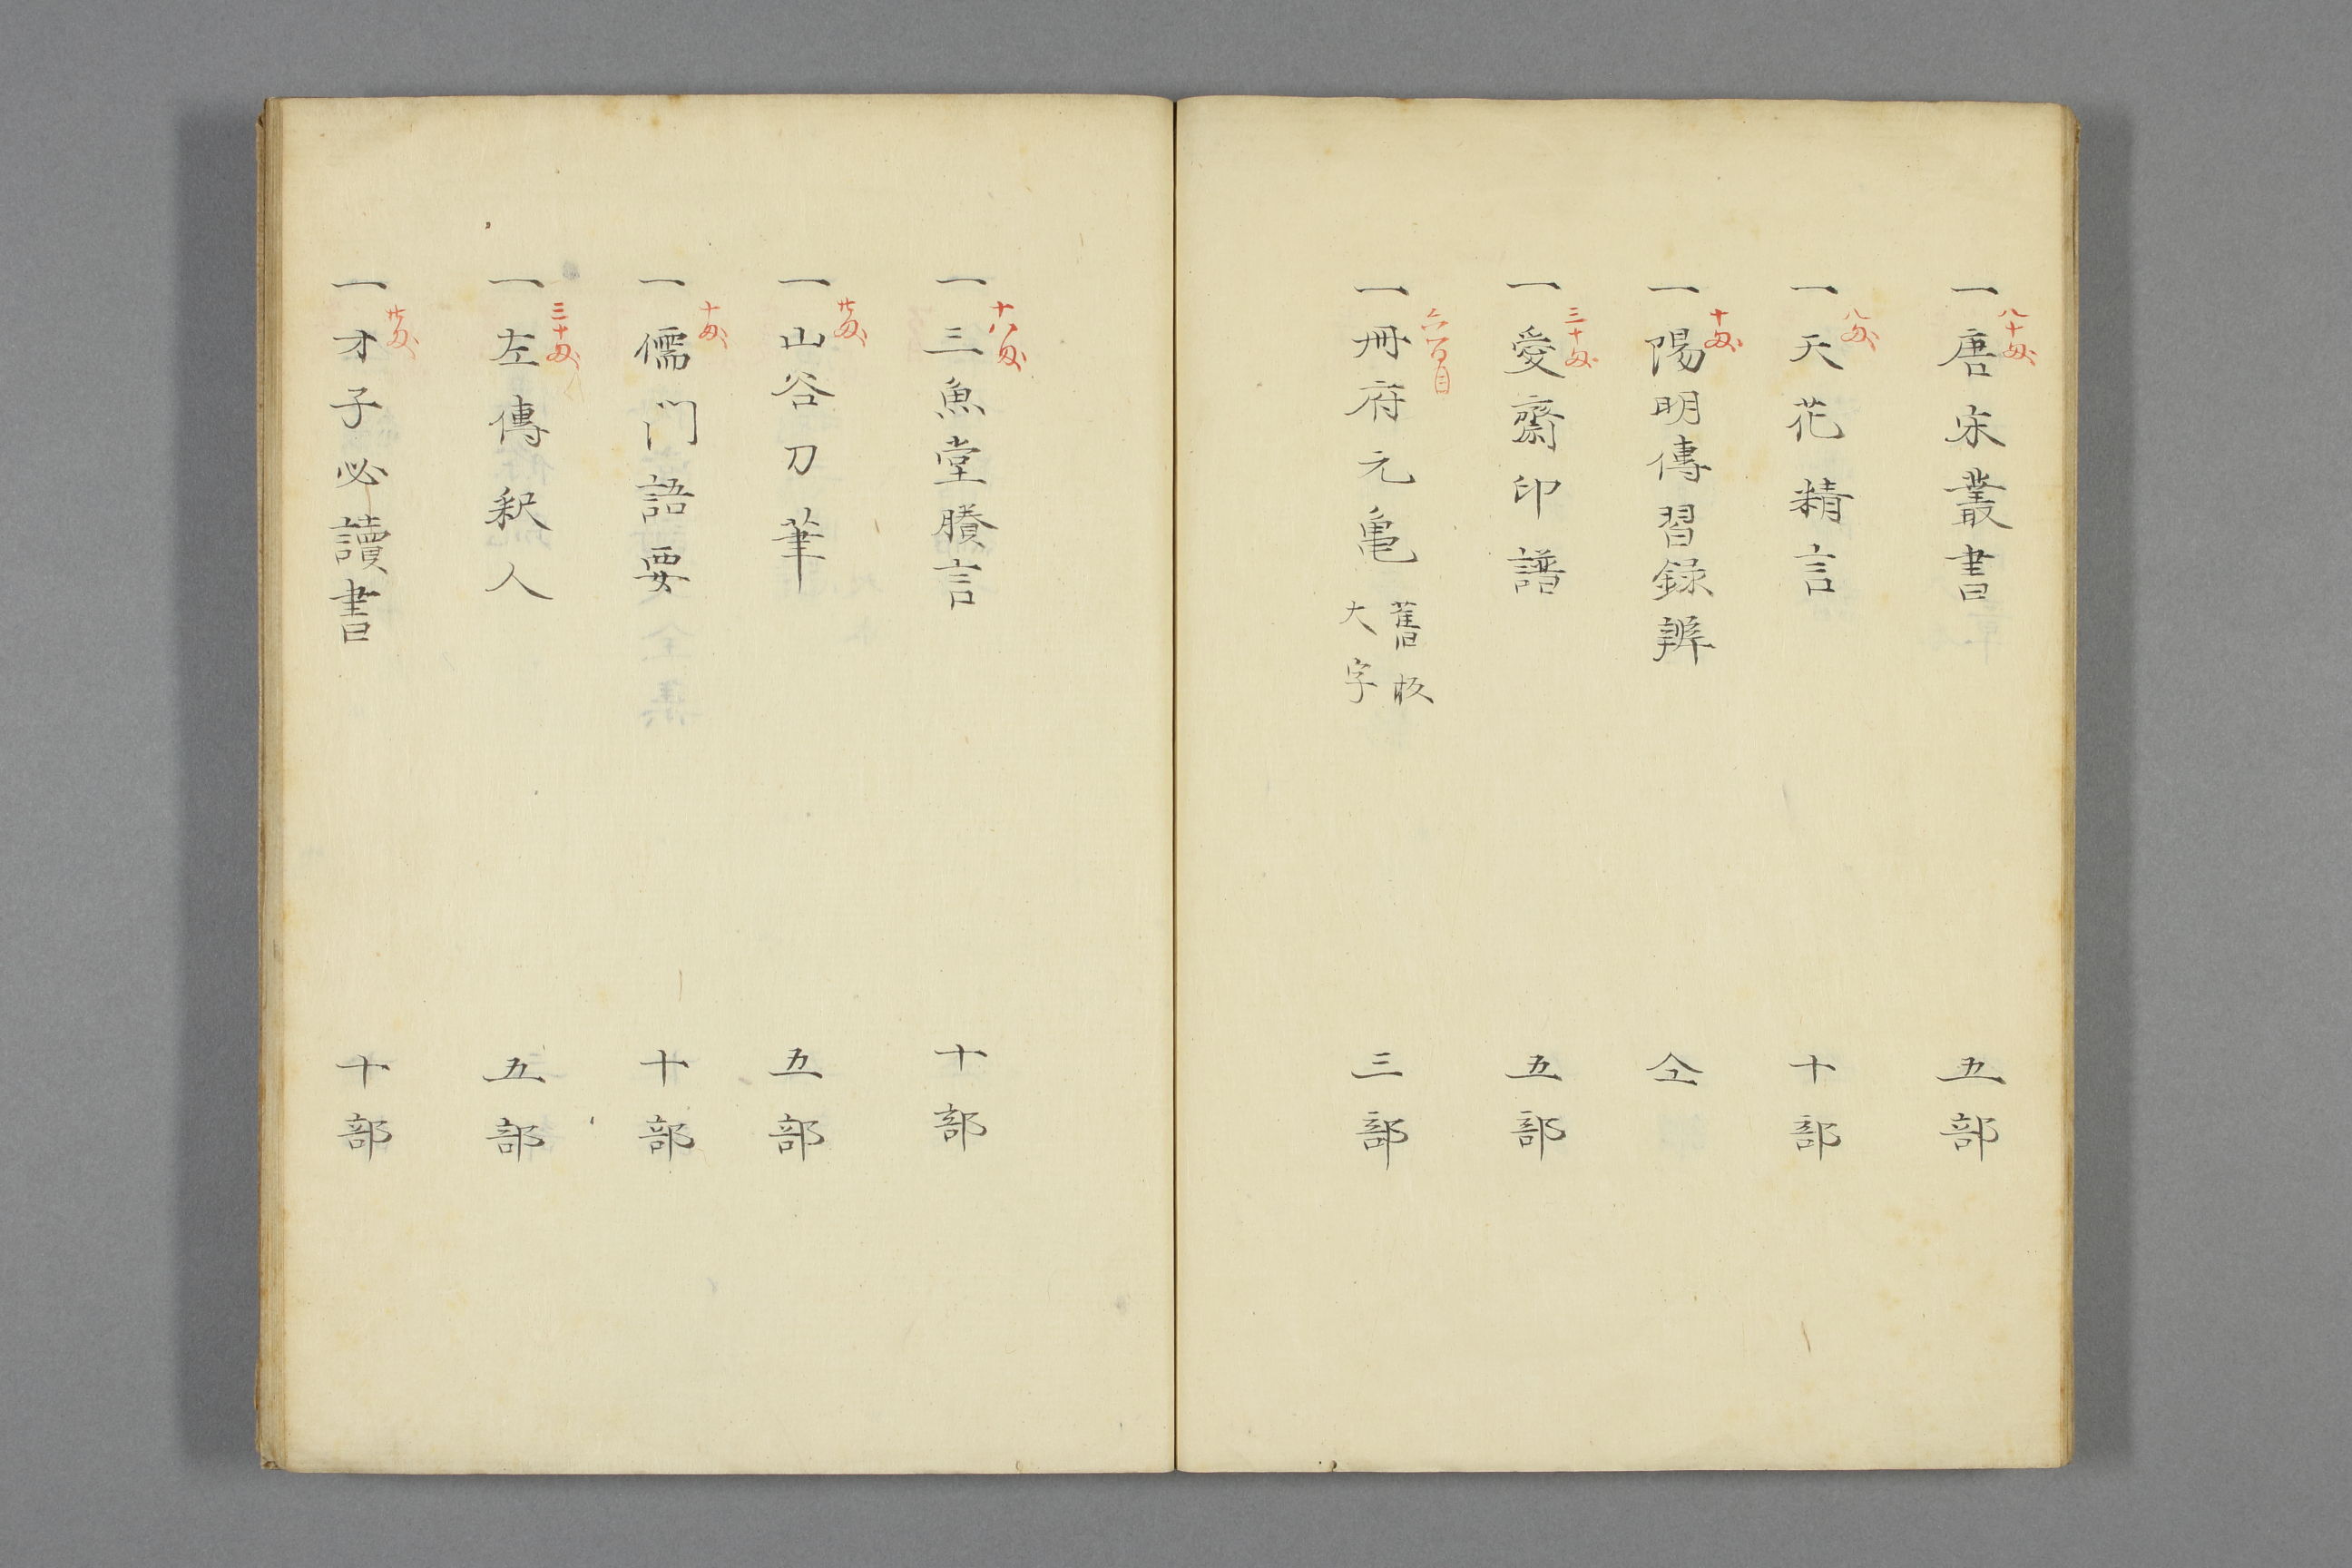 八十匁
一唐宋叢書 五部
八匁
一天花精言 十部
十匁
一陽明傳習録辨 仝
三十匁
一愛齋印譜 五部
六百目
一冊府元亀 舊板大字 三部
十八匁
一三魚堂賸言 十部
廿匁
一山谷刀筆 五部
十匁
一儒门語要 十部
三十匁
一左傳釈人 五部
廿匁
一才子必讀書 十部